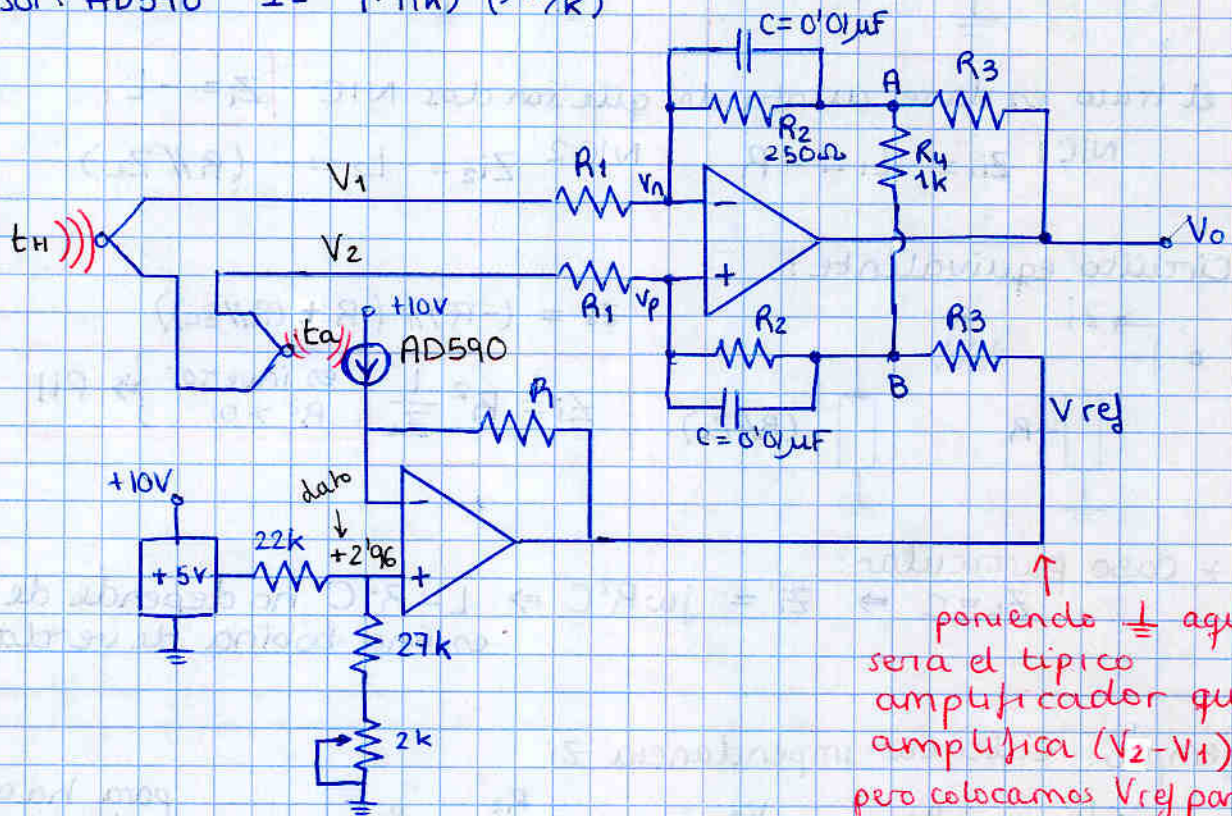 AD590
C=0'01µF
A
R3
R2
250Ω
R4
1k
V1
R1
vn
−
tH
V2
R1
vp
+
Vo
+10V
ta
AD590
R2
R3
B
C=0'01µF
Vref
R
+10V
dato
22k
+2'96
−
+5V
+
27k
2k
poniendo ⏚ aqu
seria el tipico
amplificador qu
amplifica (V2-V1)
pero colocamos Vref par